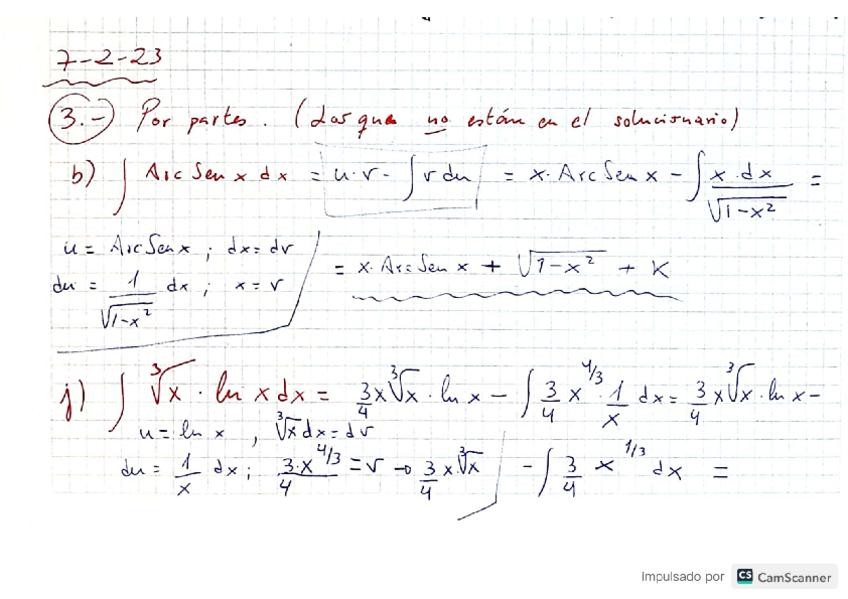 7-2-23
3.-) Por partes. (Las que no están en el solucionario)
b) ∫ ArcSen x dx = u·v - ∫ v du = x·ArcSen x - ∫ x·dx/√(1-x²) =
u = ArcSen x ; dx = dv
= x·ArcSen x + √(1-x²) + K
du = 1/√(1-x²) dx ; x = v
j) ∫ ∛x · ln x dx = 3/4 x ∛x · ln x - ∫ 3/4 x^4/3 · 1/x dx = 3/4 x ∛x · ln x -
u = ln x , ∛x dx = dv
du = 1/x dx ; 3·x^4/3/4 = v → 3/4 x ∛x
- ∫ 3/4 x^1/3 dx =
Impulsado por CS CamScanner